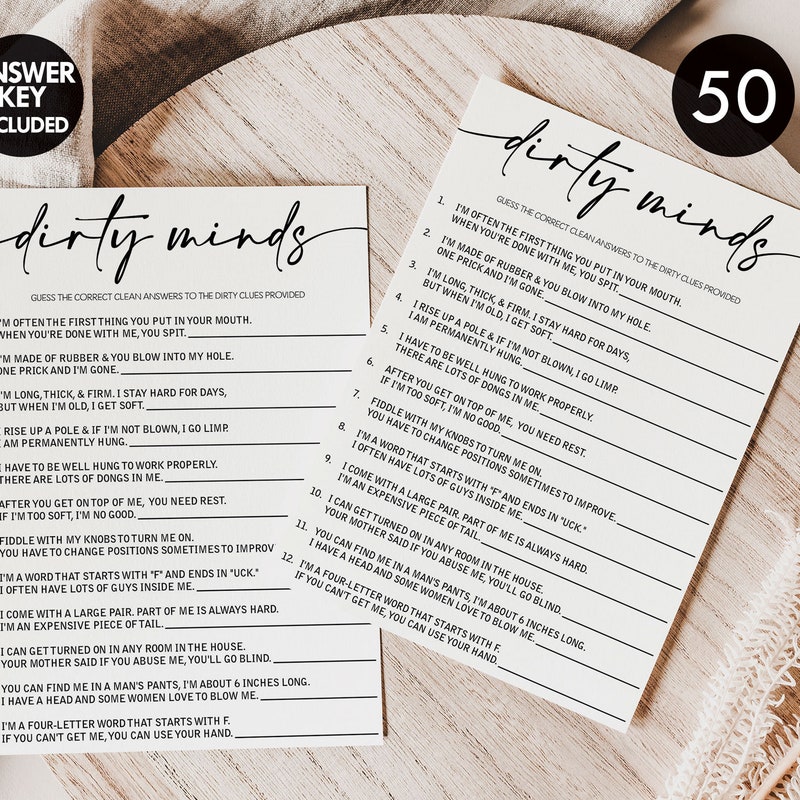 NSWER
KEY
CLUDED
50
dirty minds
GUESS THE CORRECT CLEAN ANSWERS TO THE DIRTY CLUES PROVIDED
'M OFTEN THE FIRST THING YOU PUT IN YOUR MOUTH.
WHEN YOU'RE DONE WITH ME, YOU SPIT.
I'M MADE OF RUBBER & YOU BLOW INTO MY HOLE.
ONE PRICK AND I'M GONE.
I'M LONG, THICK, & FIRM. I STAY HARD FOR DAYS,
BUT WHEN I'M OLD, I GET SOFT.
I RISE UP A POLE & IF I'M NOT BLOWN, I GO LIMP.
I AM PERMANENTLY HUNG.
I HAVE TO BE WELL HUNG TO WORK PROPERLY.
THERE ARE LOTS OF DONGS IN ME.
AFTER YOU GET ON TOP OF ME, YOU NEED REST.
IF I'M TOO SOFT, I'M NO GOOD.
FIDDLE WITH MY KNOBS TO TURN ME ON.
YOU HAVE TO CHANGE POSITIONS SOMETIMES TO IMPROV
I'M A WORD THAT STARTS WITH "F" AND ENDS IN "UCK."
I OFTEN HAVE LOTS OF GUYS INSIDE ME.
I COME WITH A LARGE PAIR. PART OF ME IS ALWAYS HARD.
I'M AN EXPENSIVE PIECE OF TAIL.
I CAN GET TURNED ON IN ANY ROOM IN THE HOUSE.
YOUR MOTHER SAID IF YOU ABUSE ME, YOU'LL GO BLIND.
YOU CAN FIND ME IN A MAN'S PANTS, I'M ABOUT 6 INCHES LONG.
I HAVE A HEAD AND SOME WOMEN LOVE TO BLOW ME.
I'M A FOUR-LETTER WORD THAT STARTS WITH F.
IF YOU CAN'T GET ME, YOU CAN USE YOUR HAND.
dirty minds
GUESS THE CORRECT CLEAN ANSWERS TO THE DIRTY CLUES PROVIDED
1. I'M OFTEN THE FIRST THING YOU PUT IN YOUR MOUTH.
WHEN YOU'RE DONE WITH ME, YOU SPIT.
2. I'M MADE OF RUBBER & YOU BLOW INTO MY HOLE.
ONE PRICK AND I'M GONE.
3. I'M LONG, THICK, & FIRM. I STAY HARD FOR DAYS,
BUT WHEN I'M OLD, I GET SOFT.
4. I RISE UP A POLE & IF I'M NOT BLOWN, I GO LIMP.
I AM PERMANENTLY HUNG.
5. I HAVE TO BE WELL HUNG TO WORK PROPERLY.
THERE ARE LOTS OF DONGS IN ME.
6. AFTER YOU GET ON TOP OF ME, YOU NEED REST.
IF I'M TOO SOFT, I'M NO GOOD.
7. FIDDLE WITH MY KNOBS TO TURN ME ON.
YOU HAVE TO CHANGE POSITIONS SOMETIMES TO IMPROVE.
8. I'M A WORD THAT STARTS WITH "F" AND ENDS IN "UCK."
I OFTEN HAVE LOTS OF GUYS INSIDE ME.
9. I COME WITH A LARGE PAIR. PART OF ME IS ALWAYS HARD.
I'M AN EXPENSIVE PIECE OF TAIL.
10. I CAN GET TURNED ON IN ANY ROOM IN THE HOUSE.
YOUR MOTHER SAID IF YOU ABUSE ME, YOU'LL GO BLIND.
11. YOU CAN FIND ME IN A MAN'S PANTS, I'M ABOUT 6 INCHES LONG.
I HAVE A HEAD AND SOME WOMEN LOVE TO BLOW ME.
12. I'M A FOUR-LETTER WORD THAT STARTS WITH F.
IF YOU CAN'T GET ME, YOU CAN USE YOUR HAND.